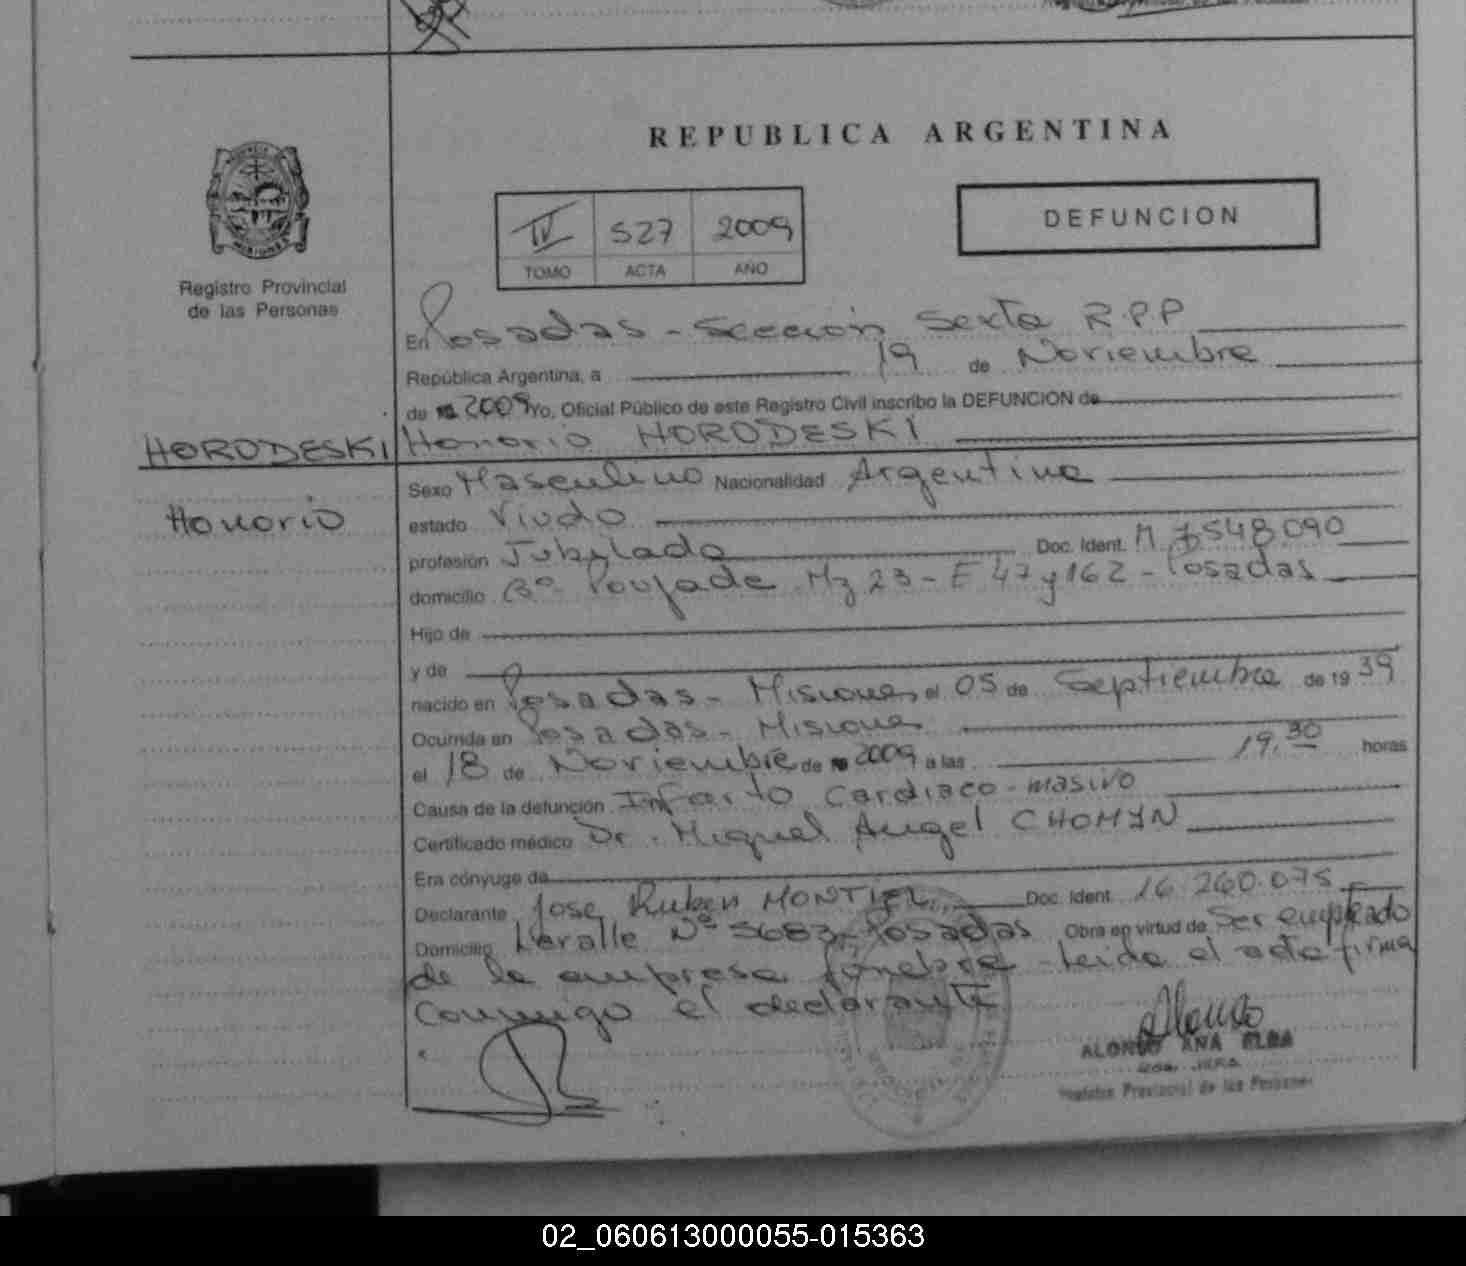 REPUBLICA ARGENTINA
IV 527 2009
TOMO ACTA AÑO
DEFUNCION
Registro Provincial
de las Personas
En Posadas - Sección Sexta R.P.P
República Argentina, a 19 de Noviembre
de 2009 Yo, Oficial Público de este Registro Civil inscribo la DEFUNCION de
HORODESKI
Honorio HORODESKI
Honorio
Sexo Masculino Nacionalidad Argentina
estado Viudo
profesión Jubilado Doc. Ident. M 7548090
domicilio Bº Poujade Mz 23 - E 47 y 162 - Posadas
Hijo de
y de
nacido en Posadas - Misiones el 05 de Septiembre de 19 39
Ocurrida en Posadas - Misiones
el 18 de Noviembre de 2009 a las 19.30 horas
Causa de la defunción Infarto Cardiaco - masivo
Certificado médico Dr. Miguel Angel CHOMYN
Era cónyuge de
Declarante Jose Ruben MONTIEL Doc. Ident. 16.260.075
Domicilio Nº 5683 - Posadas Obra en virtud de Ser empleado
de la empresa funebre - Leida el acta firma
Conmigo el declarante
Alonso
ALONSO ANA ELBA
Registro Provincial de las Personas
02_060613000055-015363